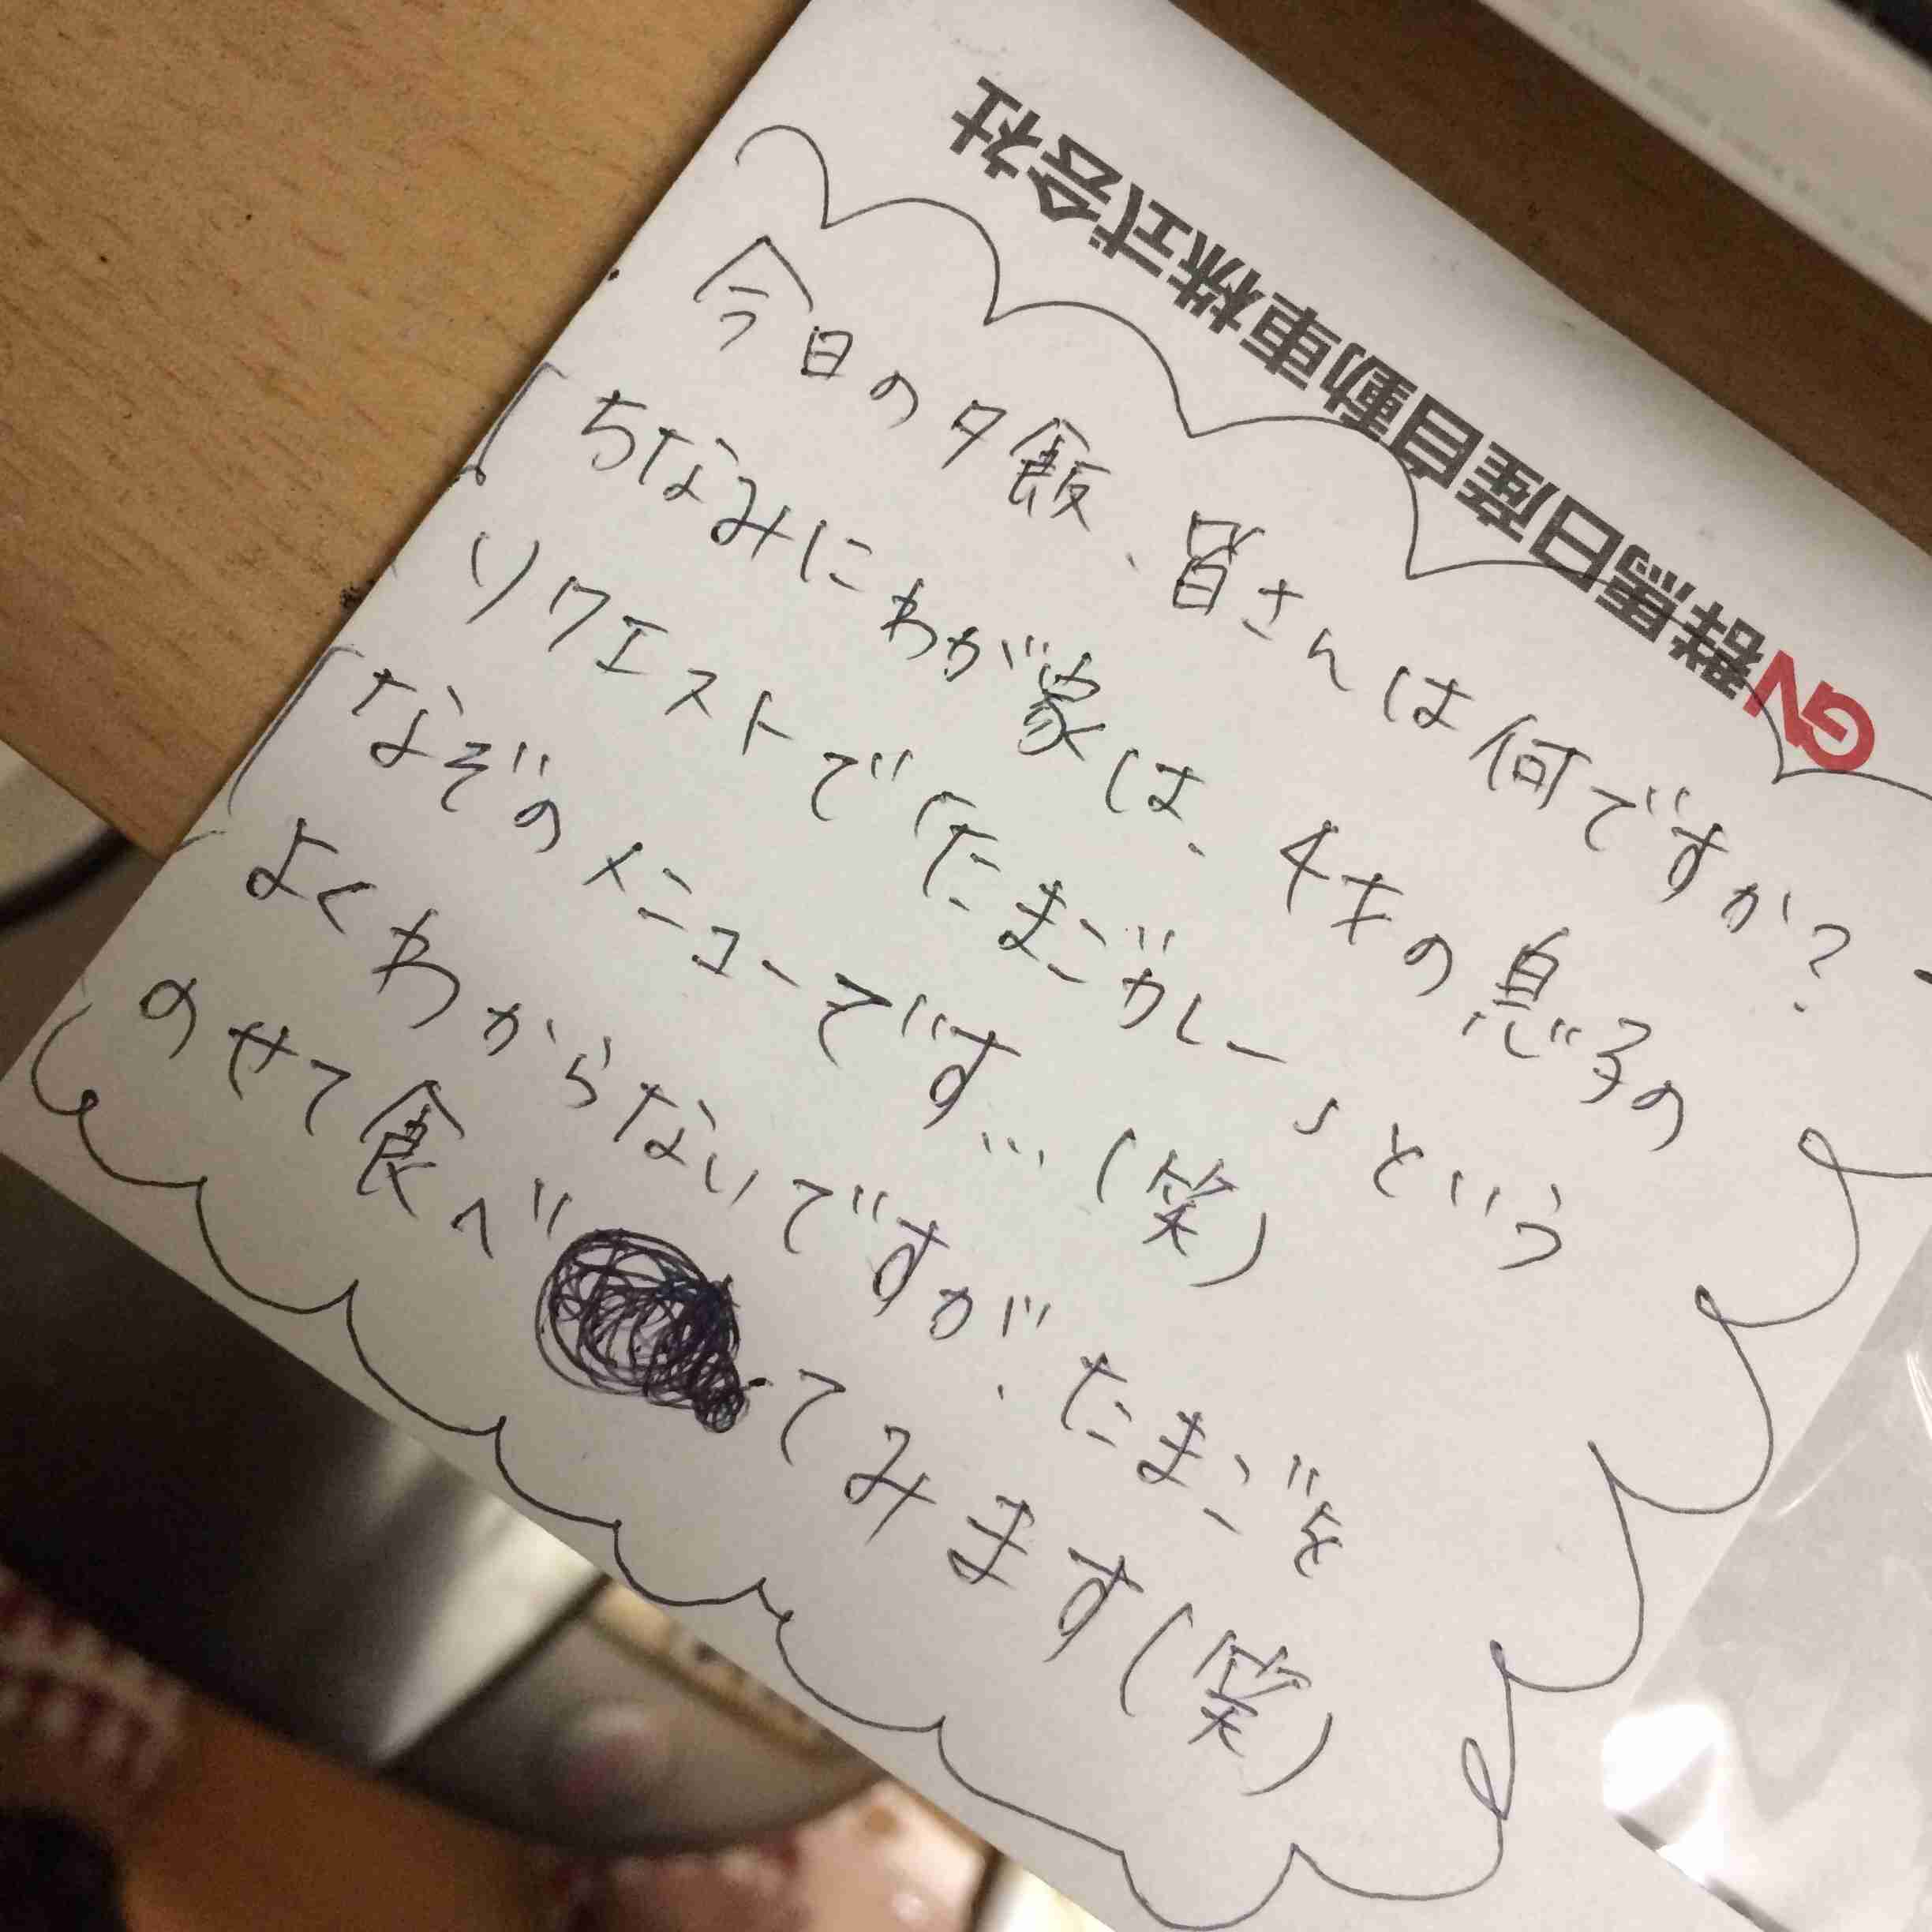 今日の夕飯、皆さんは何ですか?
ちなみにわが家は、4才の息子の
リクエストで「たまごカレー」という
なぞのメニューです…(笑)
よくわからないですが、たまごを
のせて食べてみます(笑)
GN群馬日産自動車株式会社